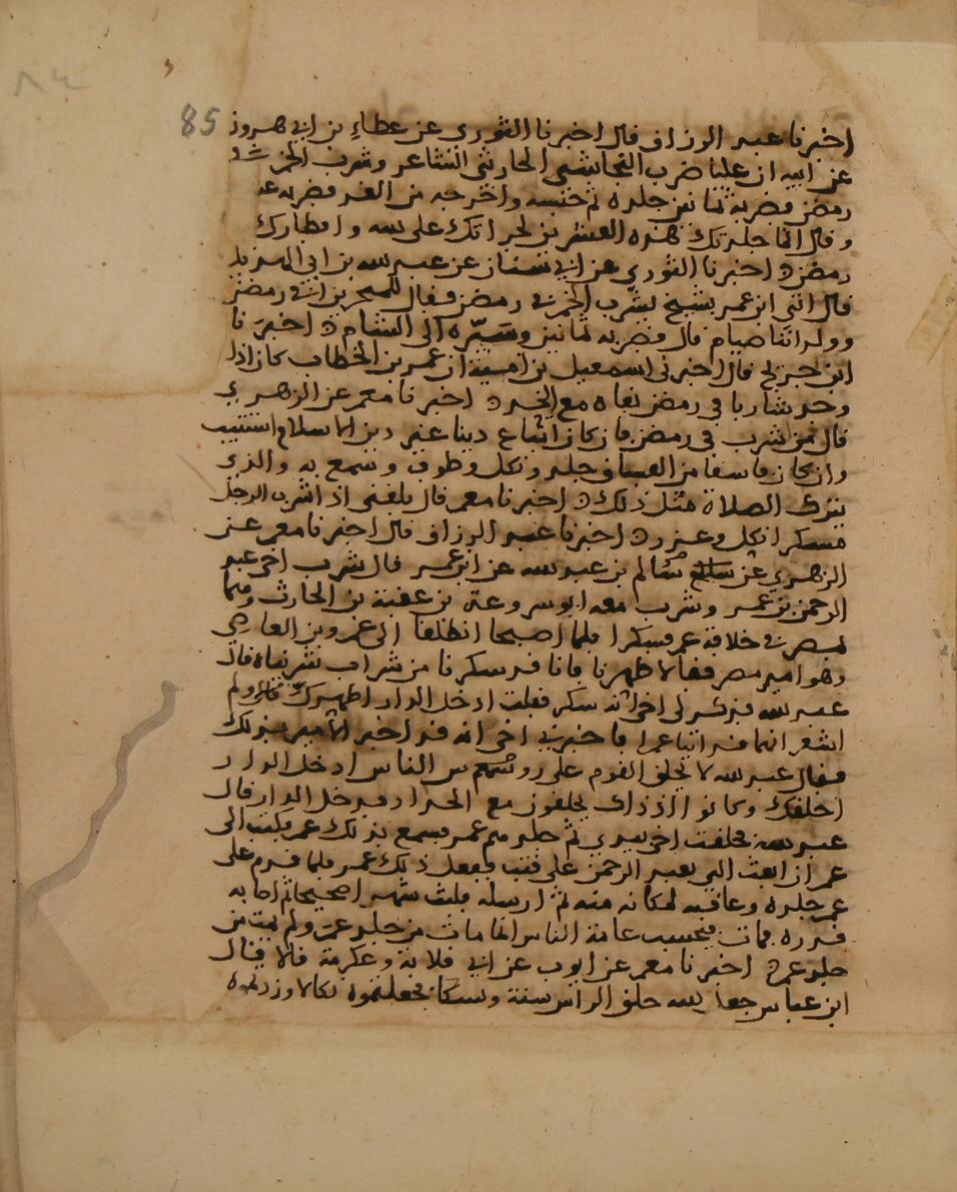 85
اخبرنا عبد الرزاق قال اخبرنا الثوري عن عطاء بن ابي مروان
عن ابيه ان عليا ضرب النجاشي الحارثي الشاعر وشرب الخمر في
رمضن فضربه ثمانين جلده ثم حبسه واخرجه من الغد فضربه عشـ
وقال انما جلدتك هذه العشرين لجراتك على الله وافطارك
رمضن ه اخبرنا الثوري عن ابي سنان عن عبد الله بن ابي الهذيل
قال اتي ابن عمر بشيخ لشرب الخمر في رمضن فقال للمنخرين افي رمضن
وولداننا صيام قال فضربه ثمانين وسيره الى الشام ه اخبرنا
ابن جريج قال اخبرني اسمعيل بن امية ان عمر بن الخطاب كان اذا
وجد شاربا في رمضن نفاه مع الحد ه اخبرنا معمر عن الزهري
قال من شرب في رمضن فان كان ابتدع دينا غير دين الاسلام استتيب
وان كان فاسقا من الفساق جلد ونكل وطوف وسمع به والذي
يترك الصلاة مثل ذلك ه اخبرنا معمر قال بلغني اذا شرب الرجل
مسكرا نكل وعزر ه اخبرنا عبد الرزاق قال اخبرنا معمر عن
الزهري عن سالم بن عبد الله عن ابن عمر قال شرب اخي عبد
الرحمن بن عمر وشرب معه ابو سروعة بن عقبة بن الحارث وهما
بمصر في خلافة عمر فسكرا فلما اصبحا انطلقا الى عمرو بن العاصي
وهو امير مصر فقالا طهرنا فانا قد سكرنا من شراب شربناه قال
عبد الله فذكر لي اخي انه سكر فقلت ادخل الدار اطهرك ولم
اشعر انهما قد اتيا عمرا فاخبرني اخي انه قد اخبر الامير بذلك
فقال عبد الله لا يحلق القوم على رووس الناس ادخل الدار
احلقك وكانوا اذ ذاك يحلقون مع الحدود فدخل الدار قال
عبد الله فحلقت اخي بيدي ثم جلدهم عمرو فسمع بذلك عمر فكتب الى
عمرو ان ابعث الي بعبد الرحمن على قتب ففعل ذلك عمرو فلما قدم على
عمر جلده وعاقبه لمكانه منه ثم ارسله فلبث شهرا صحيحا ثم اصابه
قدره فمات فيحسب عامة الناس انما مات من جلد عمر ولم يمت من
جلد عمر ه اخبرنا معمر عن ايوب عن ابي قلابة وعكرمة قالا قال
ابن عباس جعل الله حلق الراس سنة ونسكا فجعلتموه نكالا وزدتموه